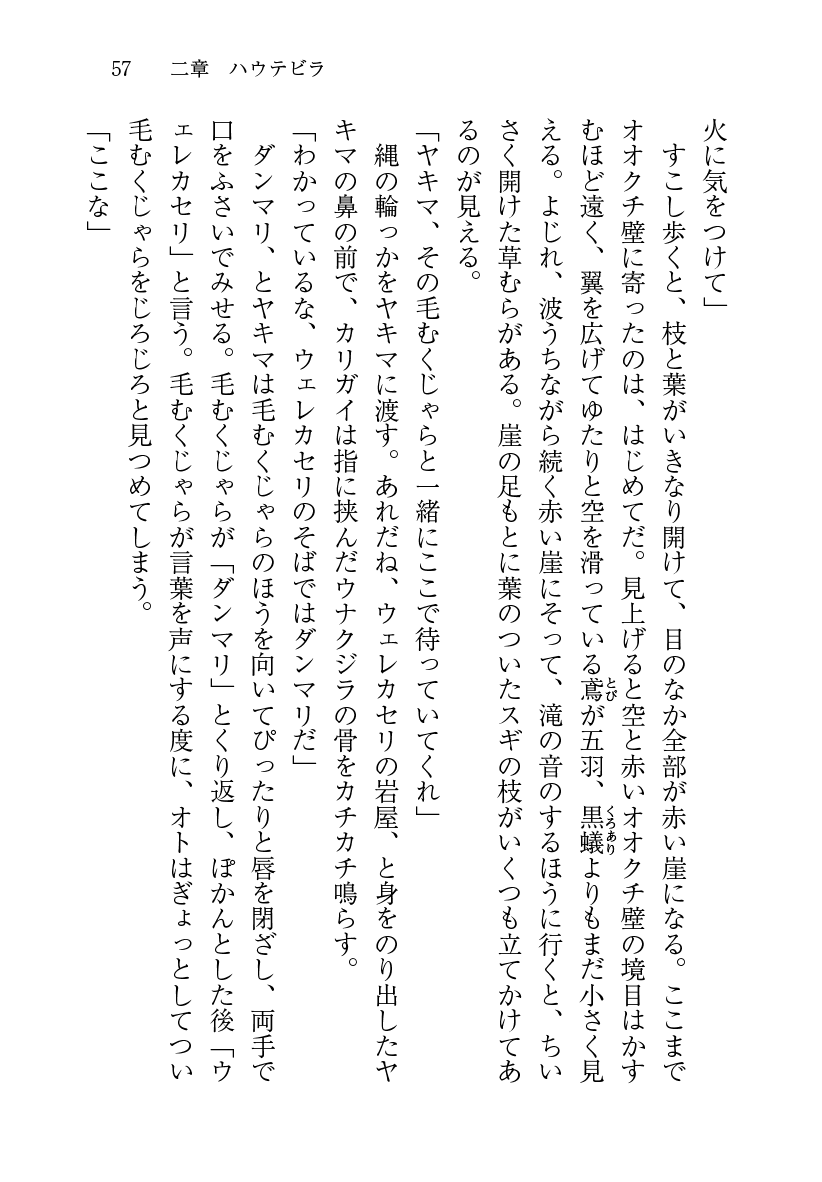 57　二章　ハウテビラ
火に気をつけて」
　すこし歩くと、枝と葉がいきなり開けて、目のなか全部が赤い崖になる。ここまで
オオクチ壁に寄ったのは、はじめてだ。見上げると空と赤いオオクチ壁の境目はかす
むほど遠く、翼を広げてゆたりと空を滑っている鳶が五羽、黒蟻よりもまだ小さく見
える。よじれ、波うちながら続く赤い崖にそって、滝の音のするほうに行くと、ちい
さく開けた草むらがある。崖の足もとに葉のついたスギの枝がいくつも立てかけてあ
るのが見える。
「ヤキマ、その毛むくじゃらと一緒にここで待っていてくれ」
　縄の輪っかをヤキマに渡す。あれだね、ウェレカセリの岩屋、と身をのり出したヤ
キマの鼻の前で、カリガイは指に挟んだウナクジラの骨をカチカチ鳴らす。
「わかっているな、ウェレカセリのそばではダンマリだ」
　ダンマリ、とヤキマは毛むくじゃらのほうを向いてぴったりと唇を閉ざし、両手で
口をふさいでみせる。毛むくじゃらが「ダンマリ」とくり返し、ぽかんとした後「ウ
ェレカセリ」と言う。毛むくじゃらが言葉を声にする度に、オトはぎょっとしてつい
毛むくじゃらをじろじろと見つめてしまう。
「ここな」